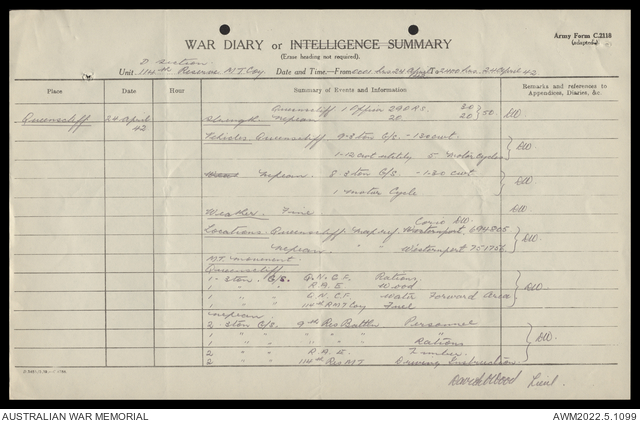 Army Form C.2118
(adapted.)
WAR DIARY or INTELLIGENCE SUMMARY
(Erase heading not required).
D Section
Unit 114th Reserve M.T. Coy. Date and Time—From 0001 hrs 24 April to 2400 hrs. 24 April 42
Place Date Hour Summary of Events and Information Remarks and references to Appendices, Diaries, &c.
Queenscliff 1 Officer 29 O.R.S. 30
Queenscliff 24 April 42 Strength Nepean 20 20 50 DW
Vehicles. Queenscliff 9-3 ton G/S. - 1-30 cwt
1-12 cwt utility 5 Motor Cycles DW
Nepean. 8 3 ton G/S - 1-30 cwt
1 Motor Cycle DW
Weather. Fine DW
Corio DW.
Locations. Queenscliff. Map ref Westernport 694805
Nepean. " Westernport 751756 DW.
M.T. Movement.
Queenscliff
1- 3 ton. G/S. G.N.C.F. Rations
1 " " R.A.E Wood
1 " " G.N.C.F. Water Forward Area
1 " " 114th R M T Coy Fuel DW.
Nepean.
2 3 ton G/S. 9th Res Battln Personnel
1 " " " Rations
2 " " R.A.E. Timber.
2 " " 114th Res MT Driving Instruction DW.
David Wood Lieut.
AUSTRALIAN WAR MEMORIAL
AWM2022.5.1099